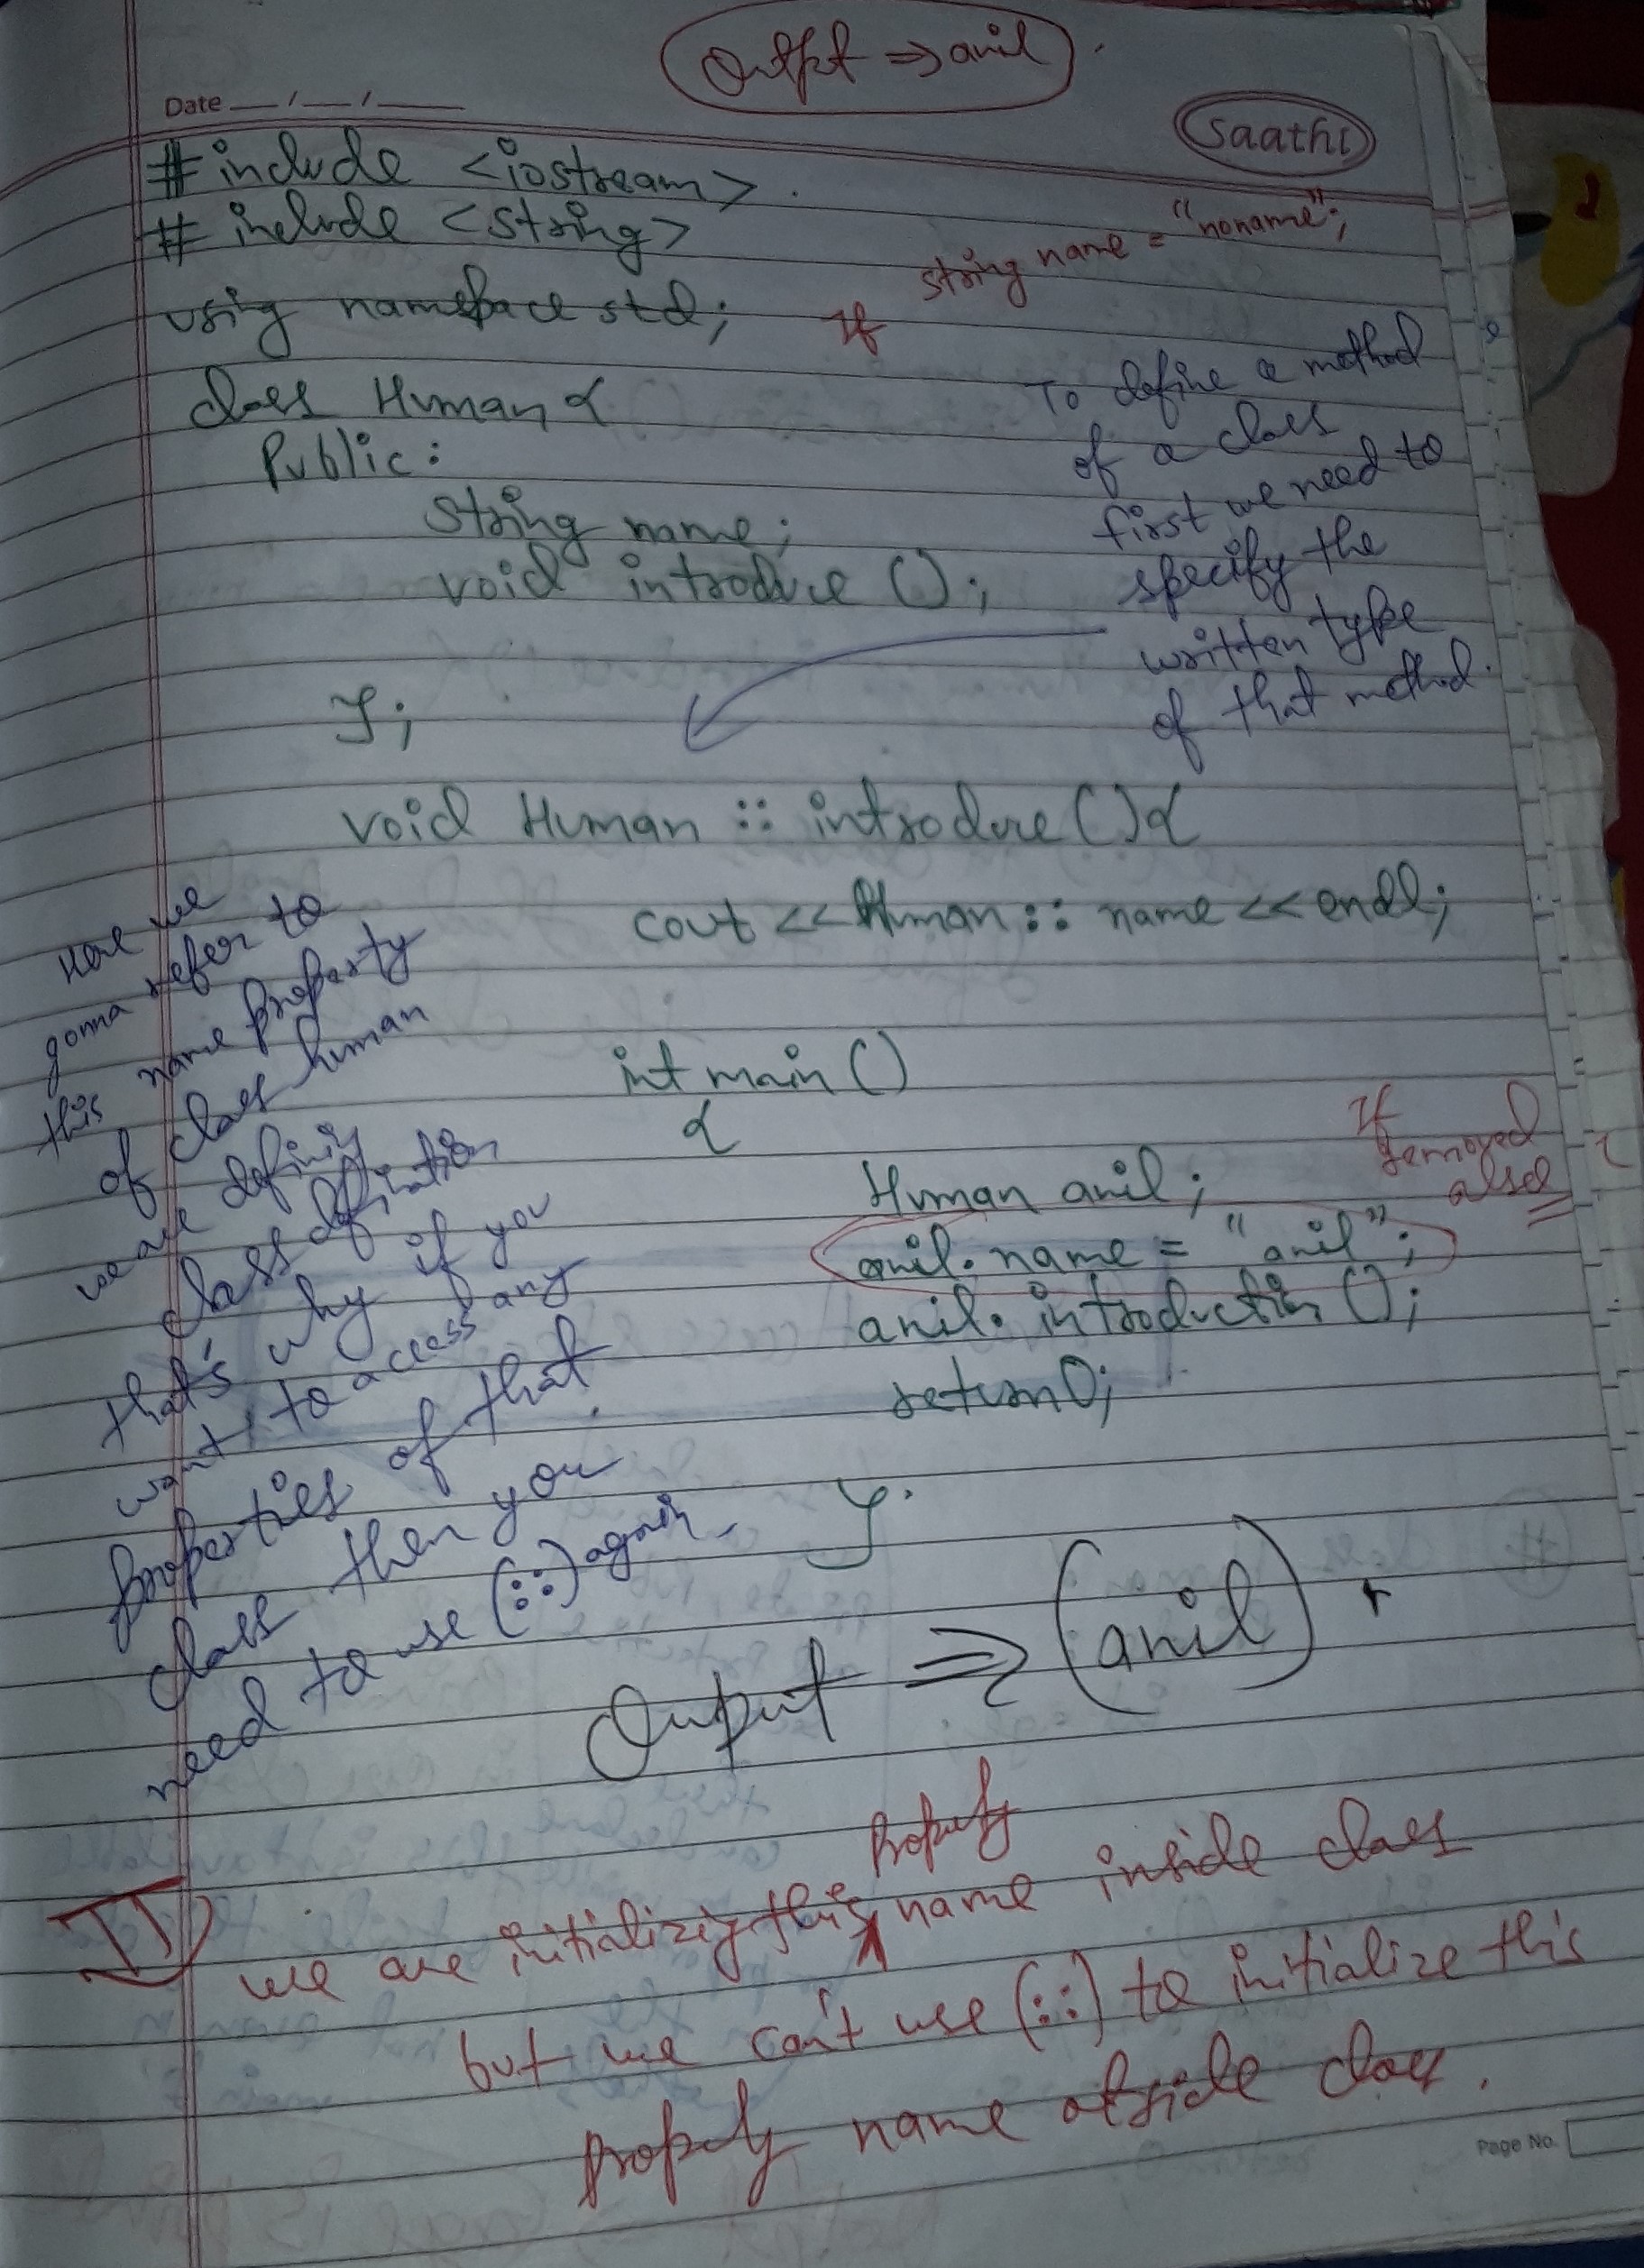 Output => anil
Date __/__/____
Saathi
#include <iostream>.
# include <string>
string name = "noname";
using namespace std;
If
class Human {
Public:
string name;
void introduce ();
To define a method
of a class
first we need to
specify the
written type
of that method.
};
void Human :: introduce () {
cout << Human :: name << endl;
Here we
gonna refer to
this name property
of class human
we are defining
class defination
that's why if you
want to access any
properties of that
class then you
need to use (::) again.
int main ()
{
Human anil;
If
removed
also
anil. name = "anil";
anil. introduction ();
return 0;
}.
Output => (anil)
II
property
we are initializing this name inside class
but we can't use (::) to initialize this
property name outside class.
Page No.